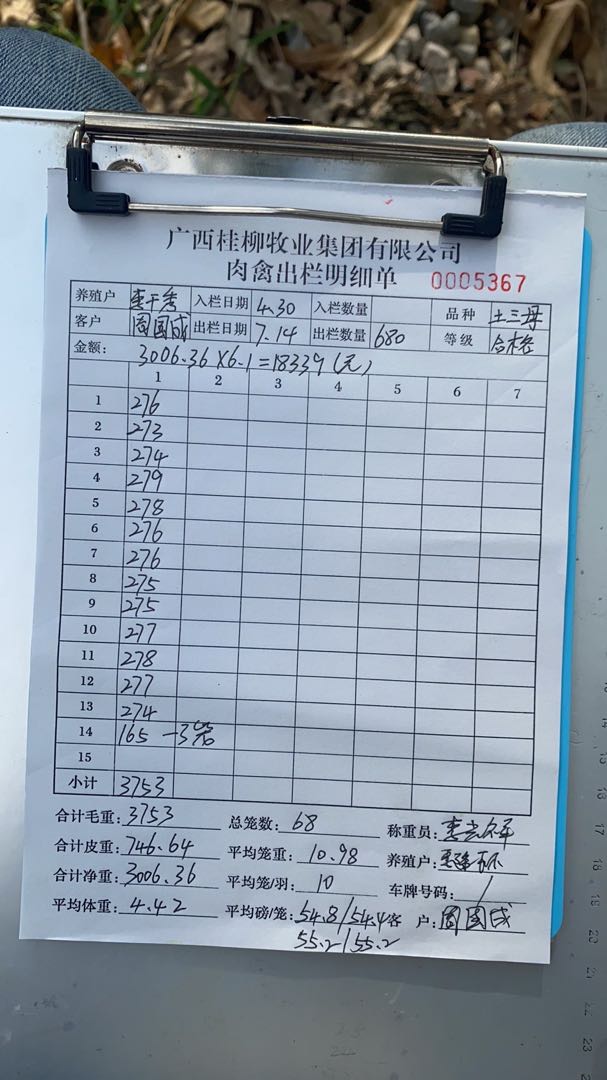 广西桂柳牧业集团有限公司
肉禽出栏明细单 0005367
养殖户 入栏日期 4.30 入栏数量 品种 土三母
客户 周国成 出栏日期 7.14 出栏数量 680 等级 合格
金额: 3006.36×6.1=18339(元)
1 2 3 4 5 6 7
1 276
2 273
3 274
4 279
5 278
6 276
7 276
8 275
9 275
10 277
11 278
12 277
13 274
14 165 -3笼
15
小计 3753
合计毛重: 3753 总笼数: 68 称重员:
合计皮重: 746.64 平均笼重: 10.98 养殖户:
合计净重: 3006.36 平均笼/羽: 10 车牌号码: /
平均体重: 4.42 平均磅/笼: 54.8/54.4 客 户: 周国成
55.2/55.2
13
15
16
17
18
19
20
21
22
23